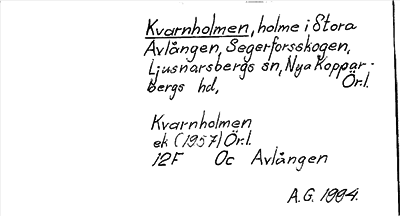 Kvarnholmen, holme i Stora
Avlången, Segerforsskogen,
Ljusnarsbergs sn, Nya Koppar-
bergs hd, Ör.l.
Kvarnholmen
ek (1957) Ör.l.
12F Oc Avlången
A.G. 1994.